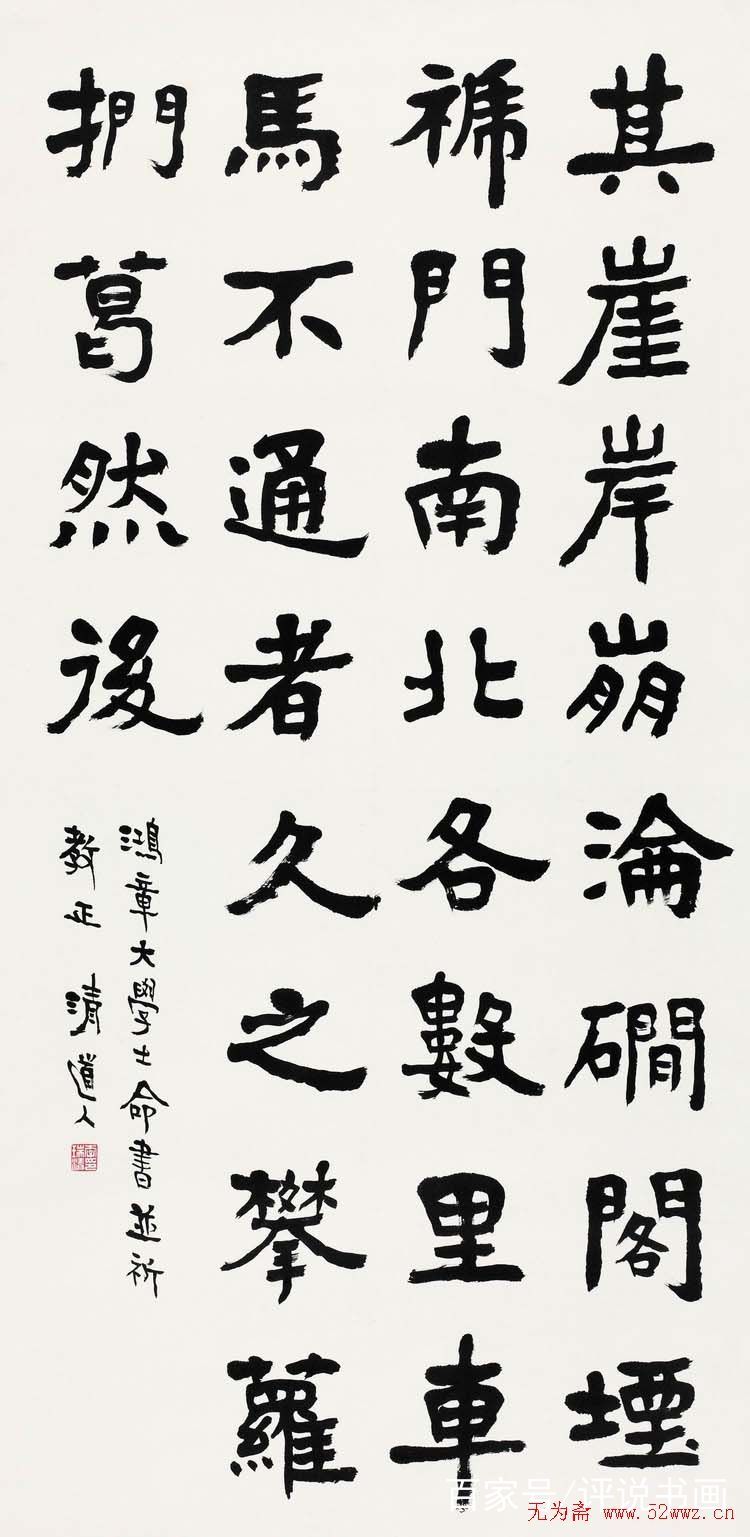 其崖岸崩淪磵閣堙
褫門南北各數里車
馬不通者久之攀蘿
捫葛然後
鴻章大學士命書並祈
教正 清道人
百家号/评说书画
无为斋 www.52wwz.cn